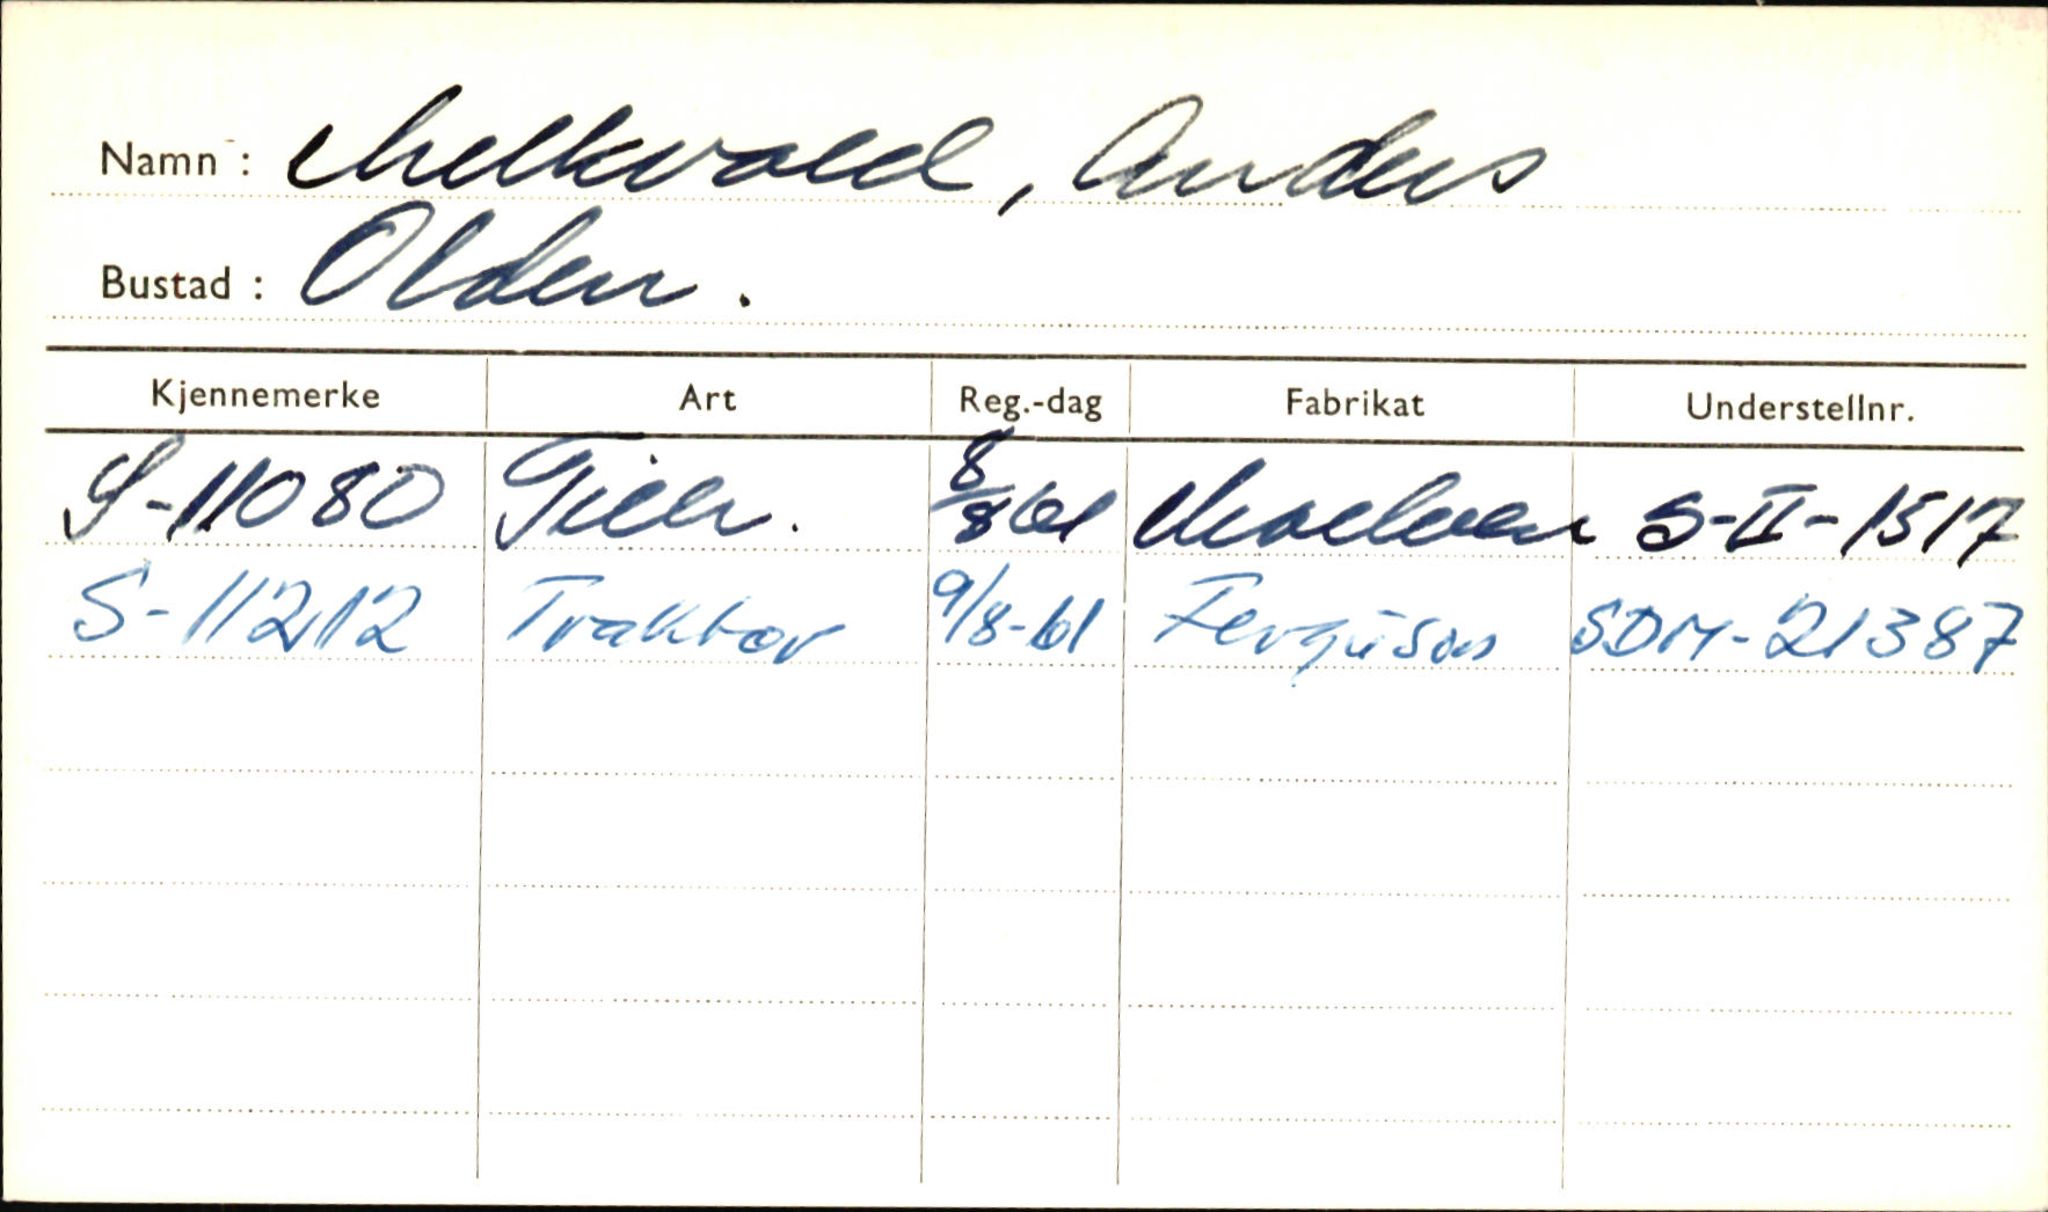 Namn : Melkvold, Anders
Bustad : Olden.
Kjennemerke Art Reg.-dag Fabrikat Understellnr.
S-11080 Tilh. 8/8 61 Moelven S-II-1517
S-11212 Traktor 9/8-61 Ferguson SDM-21387